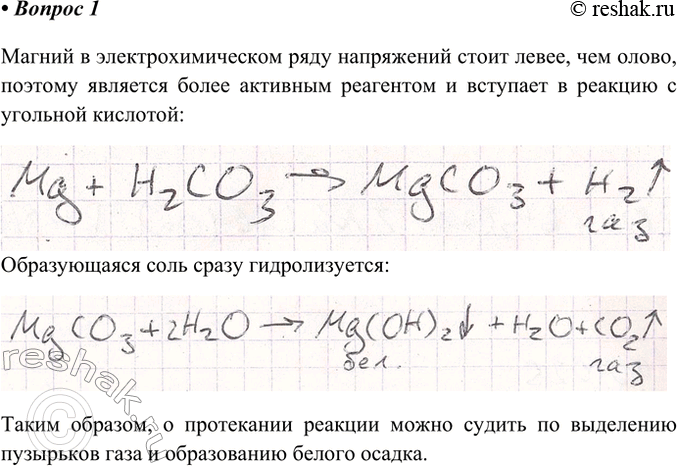 • Вопрос 1
© reshak.ru
Магний в электрохимическом ряду напряжений стоит левее, чем олово,
поэтому является более активным реагентом и вступает в реакцию с
угольной кислотой:
Mg + H₂CO₃ → MgCO₃ + H₂↑
газ
Образующаяся соль сразу гидролизуется:
MgCO₃ + 2H₂O → Mg(OH)₂↓ + H₂O + CO₂↑
бел. газ
© reshak.ru
Таким образом, о протекании реакции можно судить по выделению
пузырьков газа и образованию белого осадка.